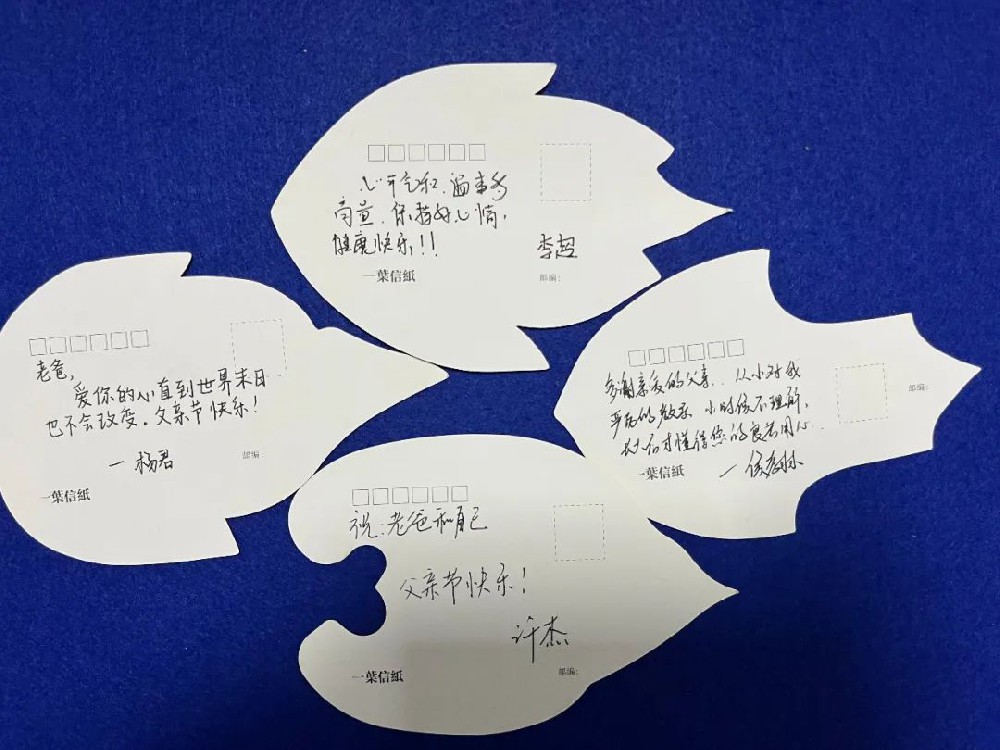 心平气和.遇事多
商量.保持好心情,
健康快乐!!
李超
一葉信紙
邮编:
老爸,
爱你的心直到世界末日
也不会改变。父亲节快乐!
一杨君
邮编
一葉信紙
多谢亲爱的父亲.从小对我
严厉的教示 小时候不理解,
长大后才懂得您的良苦用心.
邮编:
一葉信紙
祝:老爸和自己
父亲节快乐!
许杰
一葉信紙
邮编: